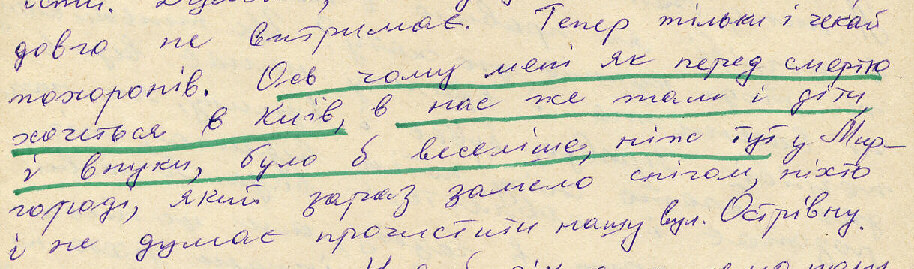 довго не витримає. Тепер тільки і чекай
похоронів. Ось чому мені як перед смертю
хочеться в Київ, в нас же там і діти
й внуки, було б веселіше, ніж тут у Мир-
городі, який зараз замело снігом, ніхто
і не думає прочистити нашу вул. Острівну.